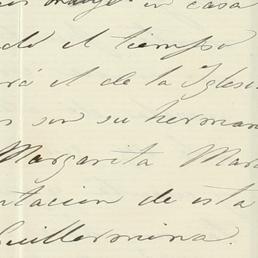 en casa
el tiempo
el de la Iglesi
son su herman
Margarita Mar
tacion de esta
Guillermina.